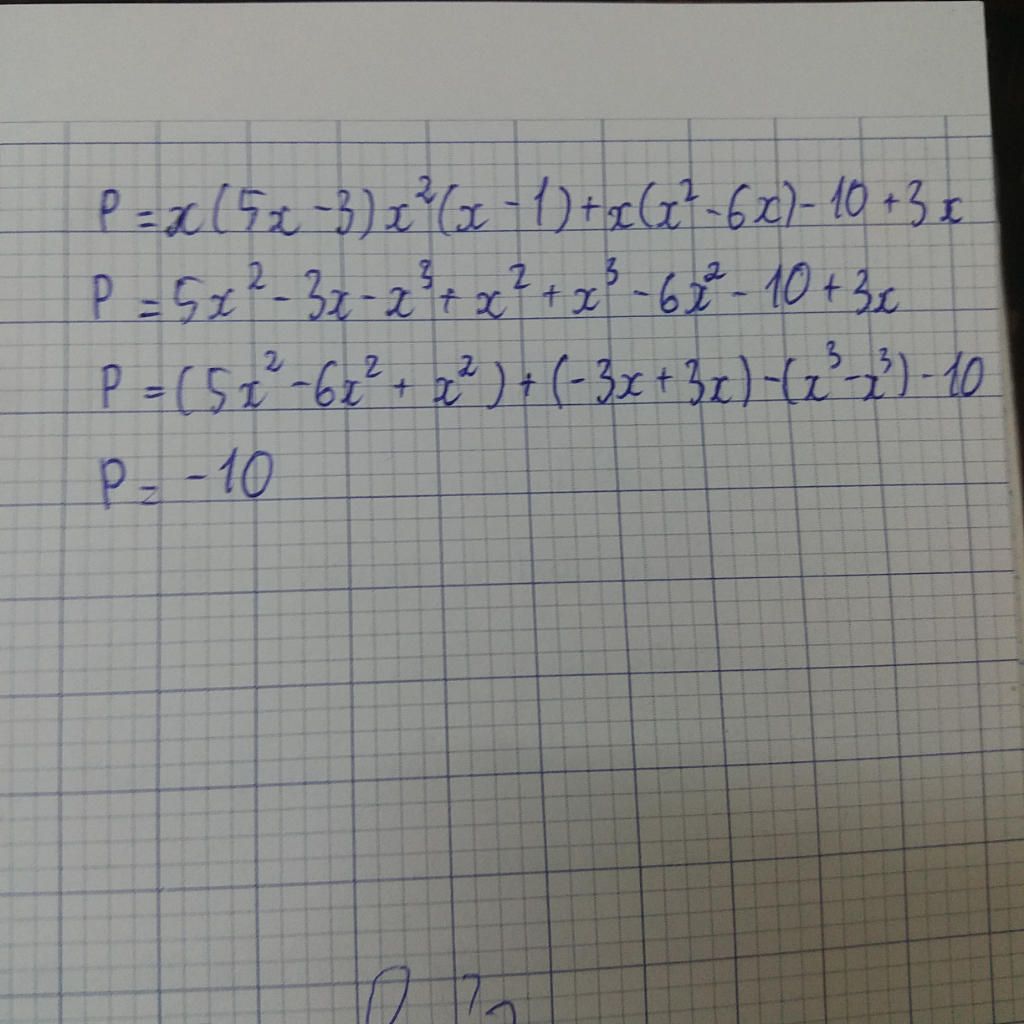 P = x(5x - 3)x²(x - 1) + x(x² - 6x) - 10 + 3x
P = 5x² - 3x - x³ + x² + x³ - 6x² - 10 + 3x
P = (5x² - 6x² + x²) + (-3x + 3x) - (x³ - x³) - 10
P = -10